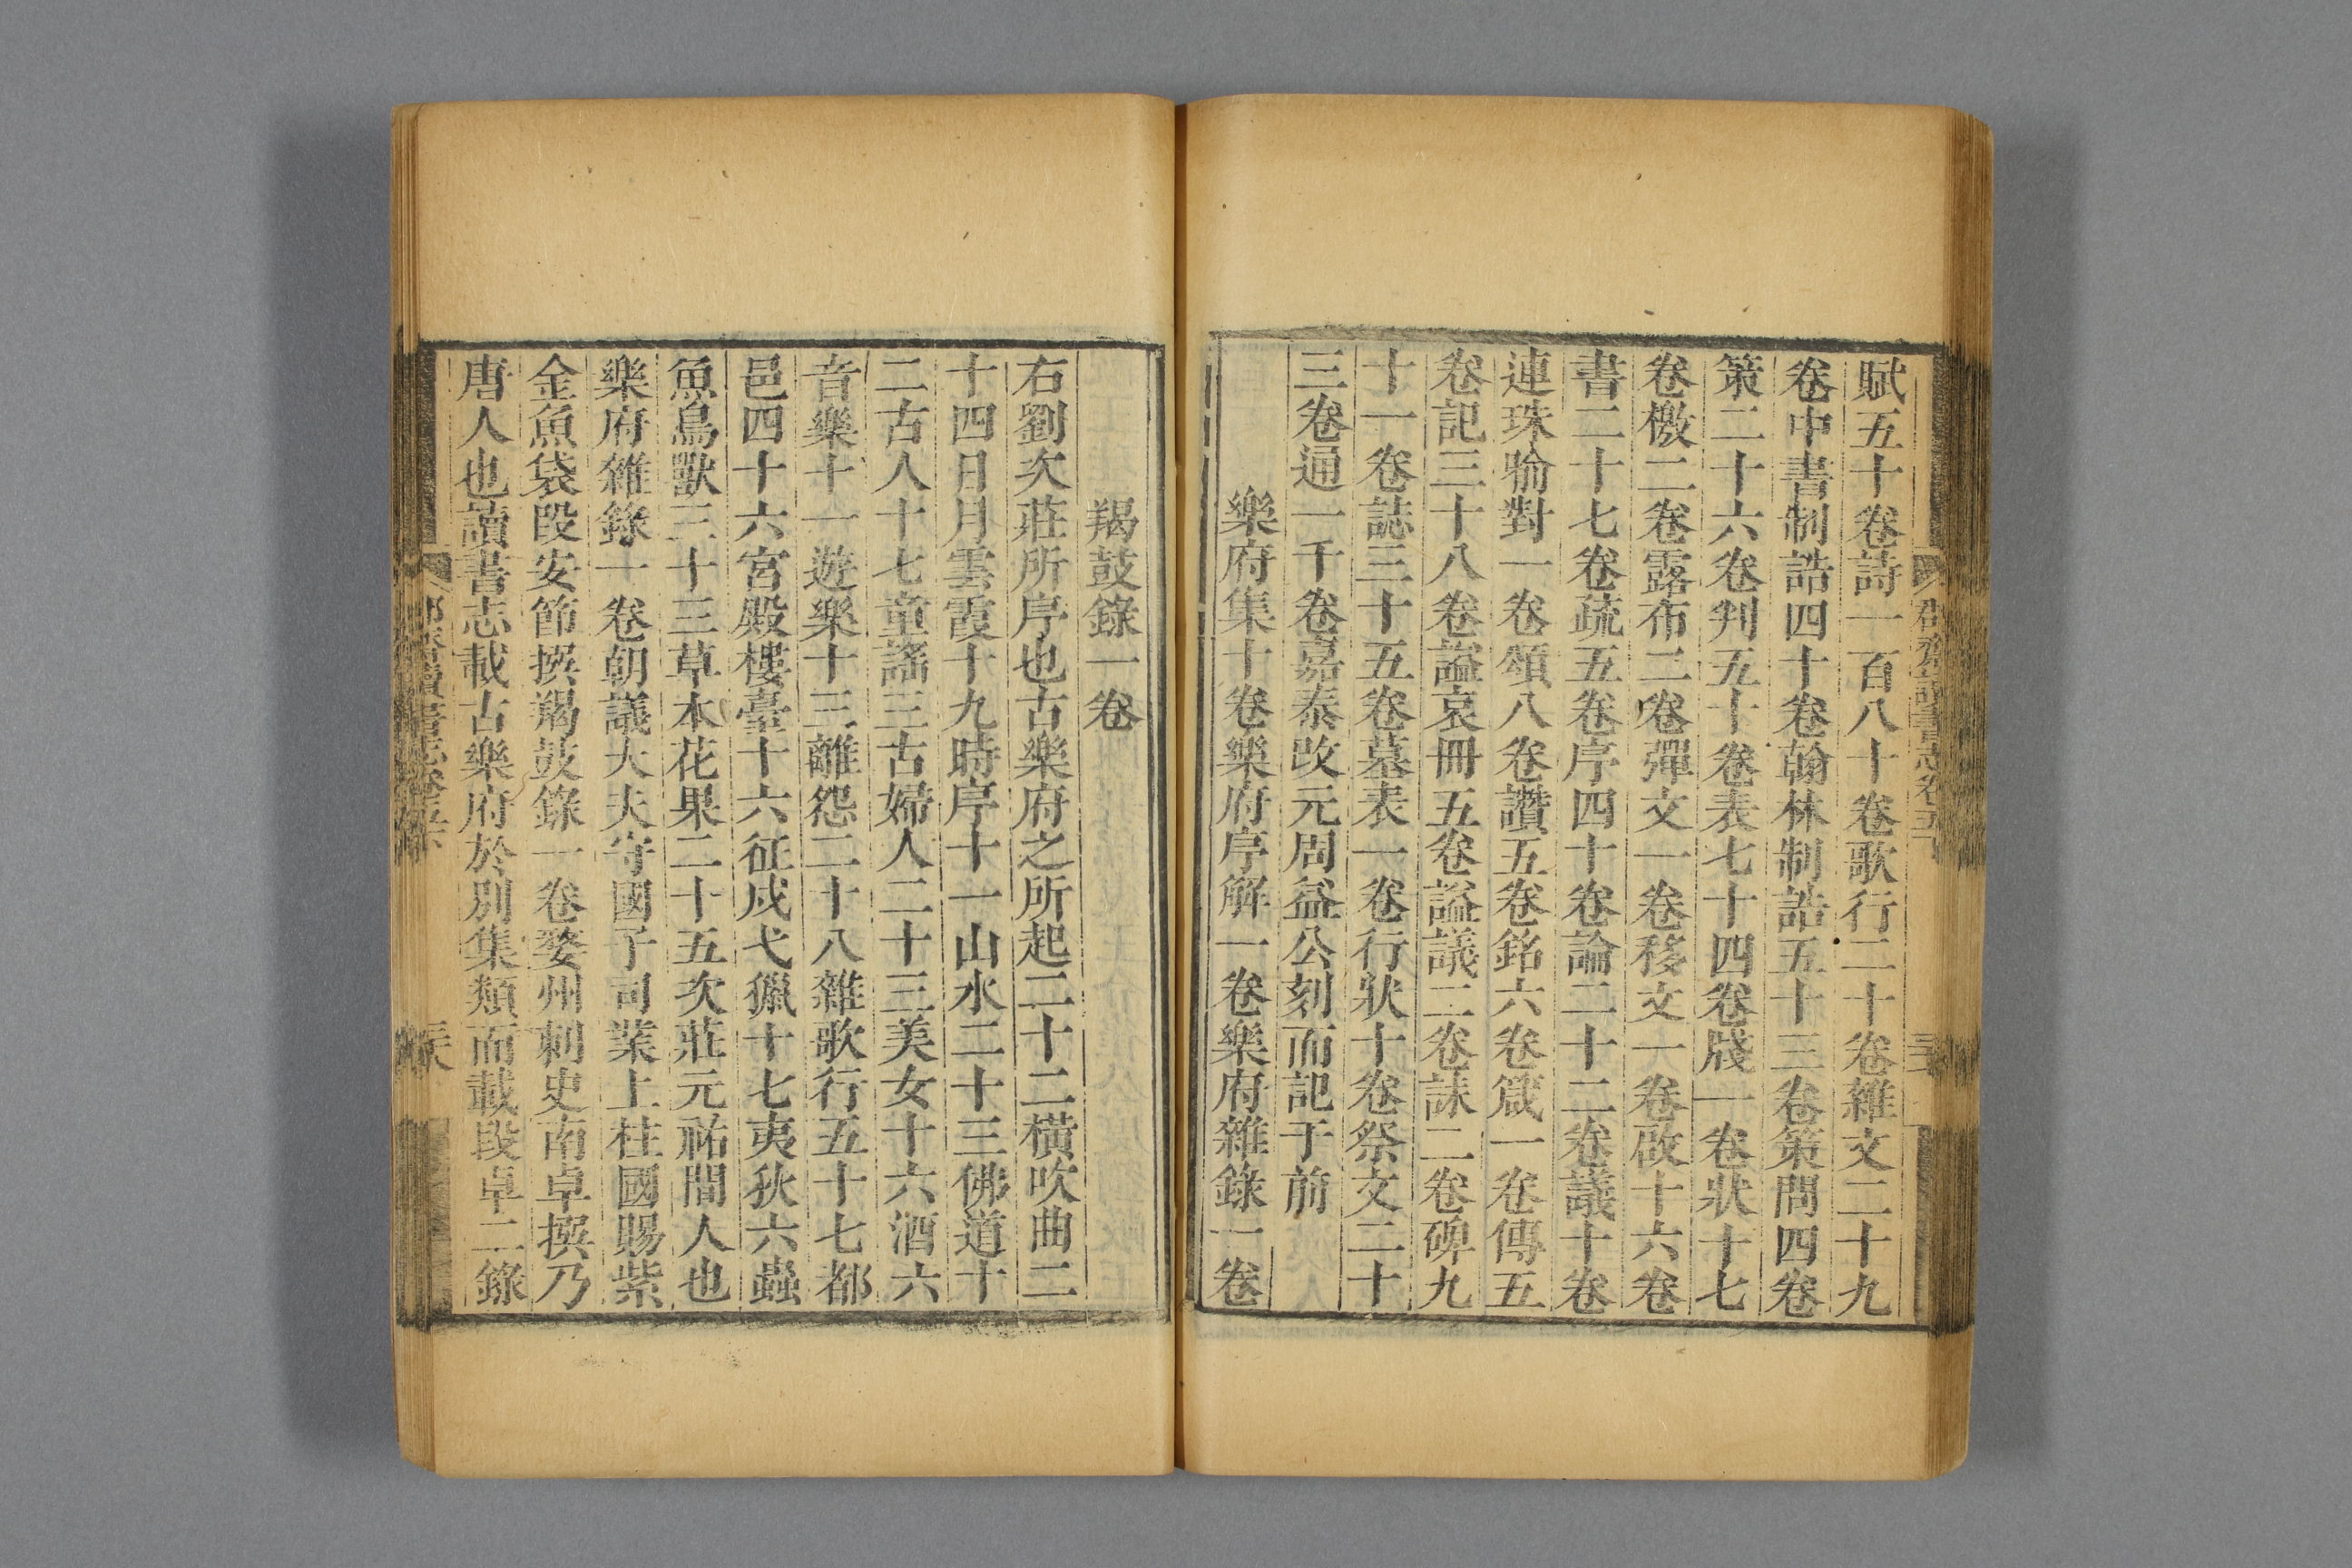 賦五十卷詩一百八十卷歌行二十卷雜文二十九
卷中書制誥四十卷翰林制誥五十三卷策問四卷
策二十六卷判五十卷表七十四卷牋一卷狀十七
卷檄二卷露布二卷彈文一卷移文一卷啟十六卷
書二十七卷疏五卷序四十卷論二十二卷議十卷
連珠喻對一卷頌八卷讚五卷銘六卷箴一卷傳五
卷記三十八卷謚哀冊五卷謚議二卷誄二卷碑九
十一卷誌三十五卷墓表一卷行狀十卷祭文二十
三卷通一千卷嘉泰改元周益公刻而記于前
樂府集十卷樂府序解一卷樂府雜錄一卷
羯鼓錄一卷
右劉次莊所序也古樂府之所起二十二橫吹曲二
十四日月雲霞十九時序十一山水二十三佛道十
二古人十七童謠三古婦人二十三美女十六酒六
音樂十一遊樂十三離怨二十八雜歌行五十七都
邑四十六宮殿樓臺十六征戍弋獵十七夷狄六蟲
魚鳥獸三十三草木花果二十五次莊元祐間人也
樂府雜錄一卷朝議大夫守國子司業上桂國賜紫
金魚袋段安節撰羯鼓錄一卷婺州刺史南卓撰乃
唐人也讀書志載古樂府於別集類而載段卓二錄